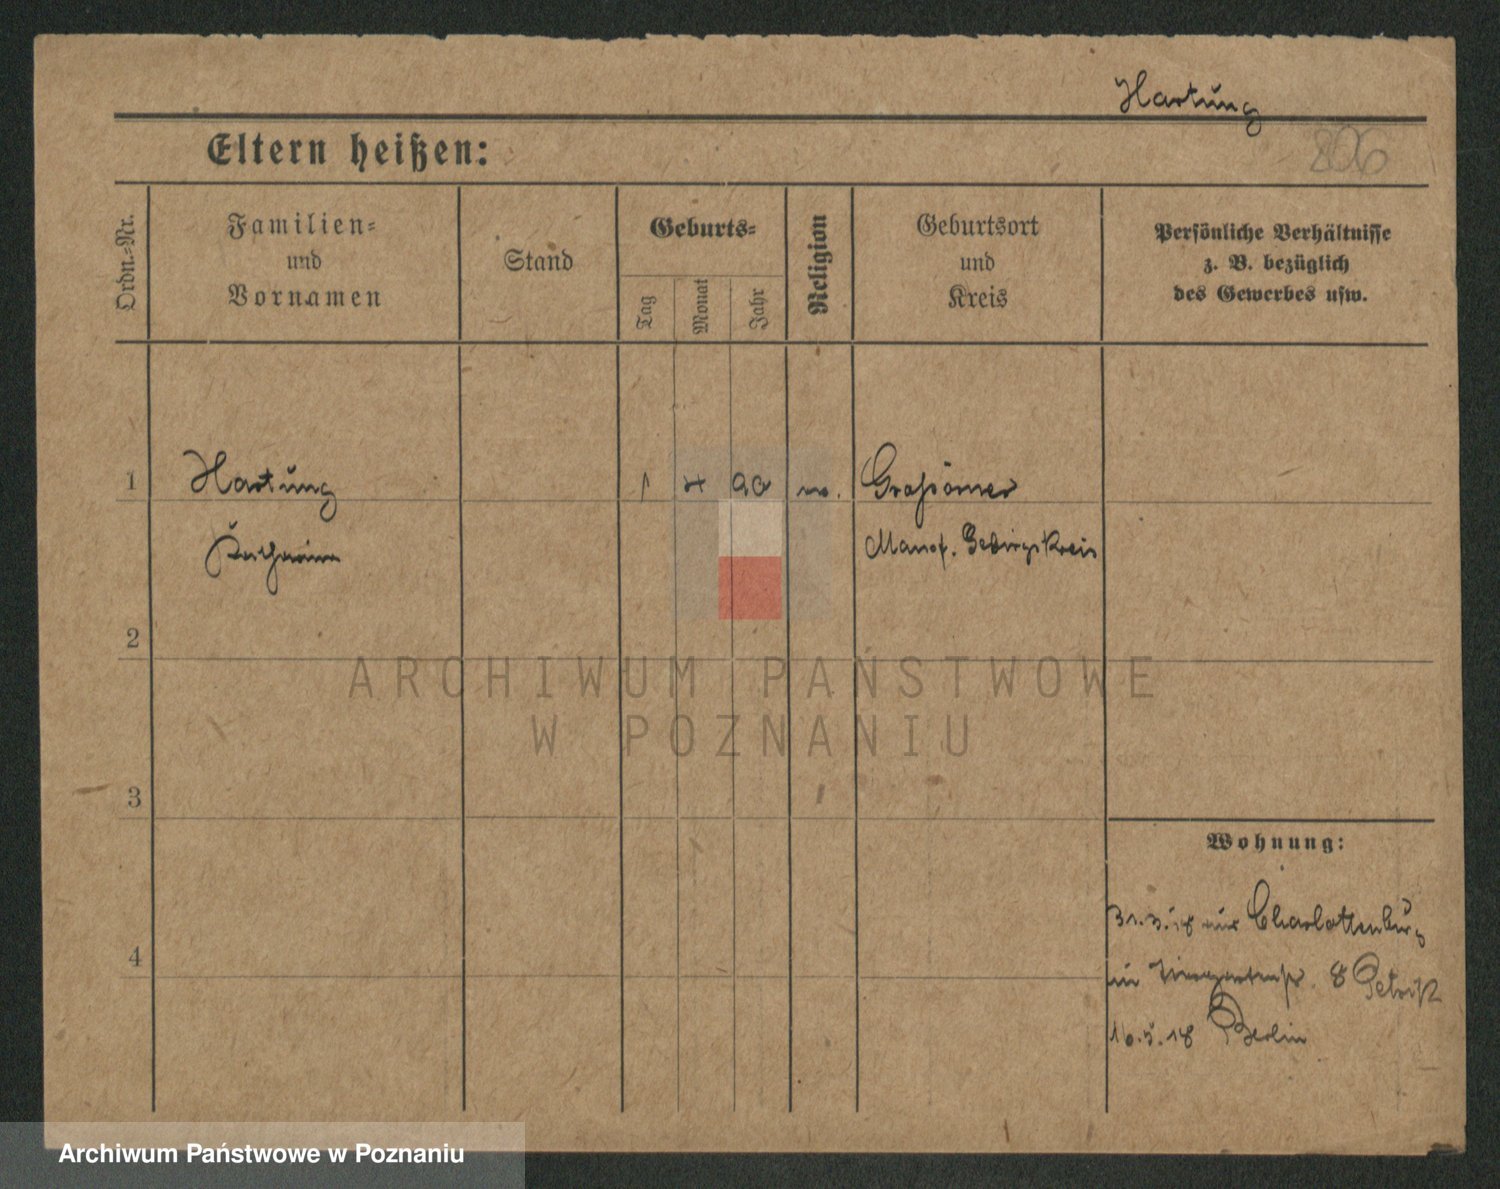 Hartung
206
Eltern heißen:
Ordn.-Nr.
Familien-
und
Vornamen
Stand
Geburts-
Tag
Monat
Jahr
Religion
Geburtsort
und
Kreis
Persönliche Verhältnisse
z. B. bezüglich
des Gewerbes usw.
1
Hartung
1 4 90
Großörner
Katharina
Mansf. Gebirgskreis
2
ARCHIWUM PAŃSTWOWE
W POZNANIU
3
Wohnung:
31.3.18 aus Charlottenburg
in Tiergartenstr. 8
4
16.5.18 Berlin
Archiwum Państwowe w Poznaniu